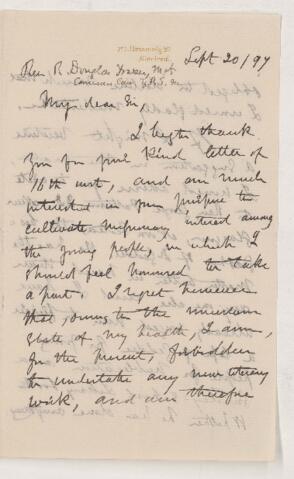 Sept 20/97
Rev R. Douglas Fraser, M.A.
My dear Sir,
I beg to thank
you for your kind letter of
16th inst, and am much
interested in your purpose to
cultivate missionary interest among
the young people, in which I
should feel honoured to take
a part. I regret however
that, owing to the uncertain
state of my health, I am,
for the present, forbidden
to undertake any new literary
work, and am therefore